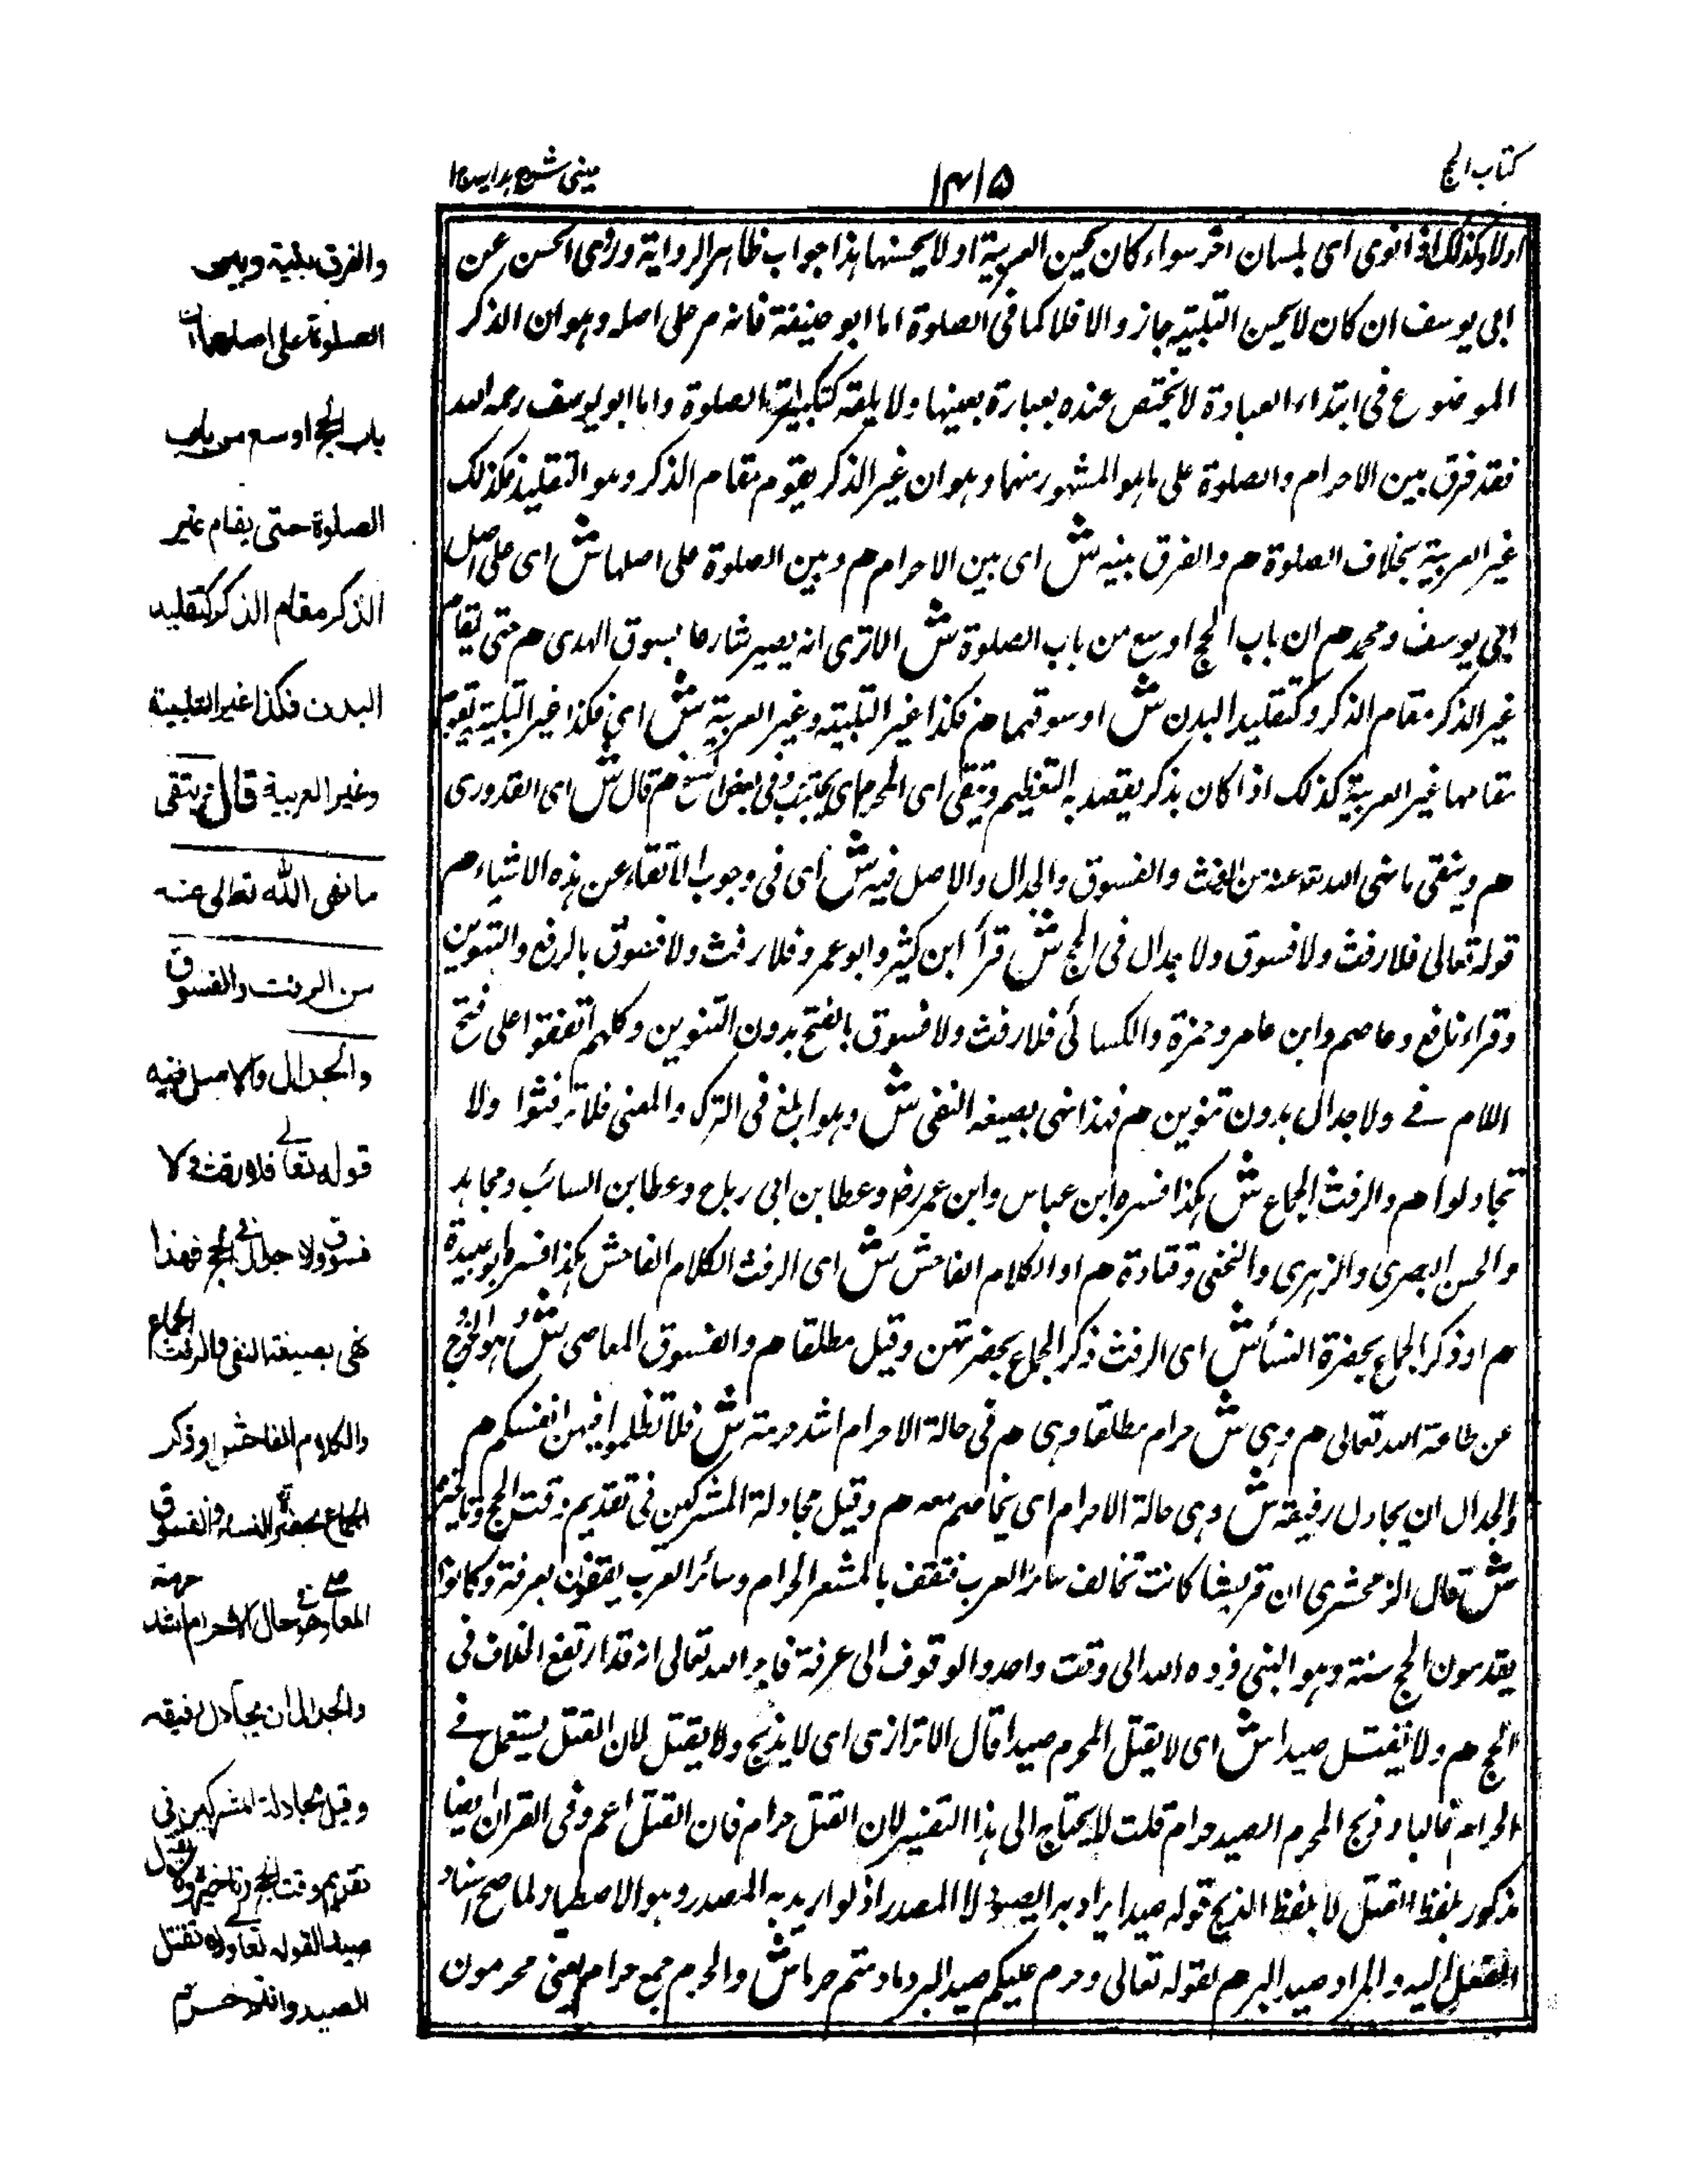 كتاب الحج
١٤١٥
عينى شرح هدايه ج١
او لا وكذلك اذا نوى اى بلسان اخر سواء كان يحسن العربية او لا يحسنها هذا جواب ظاهر الرواية وروى الحسن عن
ابى يوسف ان كان لا يحسن التلبية جاز والا فلا كما فى الصلوة اما ابو حنيفة فانه مر على اصله وهو ان الذكر
الموضوع فى ابتداء العبادة لا يختص عنده بعبارة بعينها ولا بلغة كتكبيرة الصلوة واما ابو يوسف رحمه الله
فقد فرق بين الاحرام والصلوة على ما هو المشهور منهما وهو ان غير الذكر يقوم مقام الذكر وهو التقليد فكذلك
غير العربية بخلاف الصلوة هم والفرق بينه ش اى بين الاحرام هم وبين الصلوة على اصلهما ش اى على اصل
ابى يوسف ومحمد هم ان باب الحج اوسع من باب الصلوة ش الا ترى انه يصير شارعا بسوق الهدى هم حتى يقام
غير الذكر مقام الذكر وكتقليد البدن ش او سوقهما هم فكذا غير التلبية وغير العربية ش اى فكذا غير التلبية يقوم
مقامها غير العربية كذلك اذا كان بذكر يقصد به التعظيم ويتقى اى المحرم اى يجتنب وفى بعض النسخ هم قال ش اى القدورى
هم ويتقى ما نهى الله تعا عنه من الرفث والفسوق والجدال والاصل فيه ش اى فى وجوب الاتقاء عن هذه الاشياء هم
قوله تعالى فلا رفث ولا فسوق ولا جدال فى الحج ش قرأ ابن كثير وابو عمرو فلا رفث ولا فسوق بالرفع والتنوين
وقراء نافع وعاصم وابن عامر وحمزة والكسائى فلا رفث ولا فسوق بالفتح بدون التنوين وكلهم اتفقوا على فتح
اللام فى ولا جدال بدون تنوين هم فهذا نهى بصيغة النفى ش وهو ابلغ فى الترك والمعنى فلا ترفثوا ولا
تجادلوا هم والرفث الجماع ش هكذا فسره ابن عباس وابن عمر رض وعطا بن ابى رباح وعطا بن السائب ومجاهد
والحسن البصرى والزهرى والنخعى وقتادة هم او الكلام الفاحش ش اى الرفث الكلام الفاحش هكذا فسره ابو عبيدة
هم او ذكر الجماع بحضرة النسأ ش اى الرفث ذكر الجماع بحضرتهن وقيل مطلقا هم والفسوق المعاصى ش هو الخروج
عن طاعة الله تعالى هم وهى ش حرام مطلقا وهى هم فى حالة الاحرام اشد حرمة ش فلا تظلموا فيهن انفسكم هم
والجدال ان يجادل رفيقه ش وهى حالة الاحرام اى يخاصم معه هم وقيل مجادلة المشركين فى تقديم وقت الحج وتاخيره
ش قال الزمخشرى ان قريشا كانت تخالف سائر العرب فتقف بالمشعر الحرام وسائر العرب يقفون بعرفة وكانوا
يقدمون الحج سنة وهو النسئ فرده الله الى وقت واحد والوقوف الى عرفة فاخبر الله تعالى انه قد ارتفع الخلاف فى
الحج هم ولا يقتل صيدا ش اى لا يقتل المحرم صيدا قال الاترازى اى لا يذبح ولا يقتل لان القتل يستعمل فى
الحرام غالبا وذبح المحرم الصيد حرام قلت لا يحتاج الى هذا التفسير لان القتل حرام فان القتل اعم وفى القران ايضا
مذكور بلفظ القتل لا بلفظ الذبح قوله صيدا يراد به الصيد لا المصدر اذ لو اريد به المصدر وهو الاصطياد لما صح اسناد
الفعل اليه والمراد صيد البر هم لقوله تعالى وحرم عليكم صيد البر ما دمتم حرما ش والحرم جمع حرام يعنى محرمون
والفرق بينه وبين
الصلوة على اصلهما ان
باب الحج اوسع من باب
الصلوة حتى يقام غير
الذكر مقام الذكر كتقليد
البدن فكذا غير التلبية
وغير العربية قال ويتقى
ما نهى الله تعالى عنه
من الرفث والفسوق
والجدال والاصل فيه
قوله تعالى فلا رفث ولا
فسوق ولا جدال فى الحج فهذا
نهى بصيغة النفى والرفث الجماع
والكلام الفاحش او ذكر
الجماع بحضرة النساء والفسوق
المعاصى وهو فى حال الاحرام اشد حرمة
والجدال ان يجادل رفيقه
وقيل مجادلة المشركين فى
تقديم وقت الحج وتاخيره ولا يقتل
صيدا لقوله تعالى ولا تقتلوا
الصيد وانتم حرم